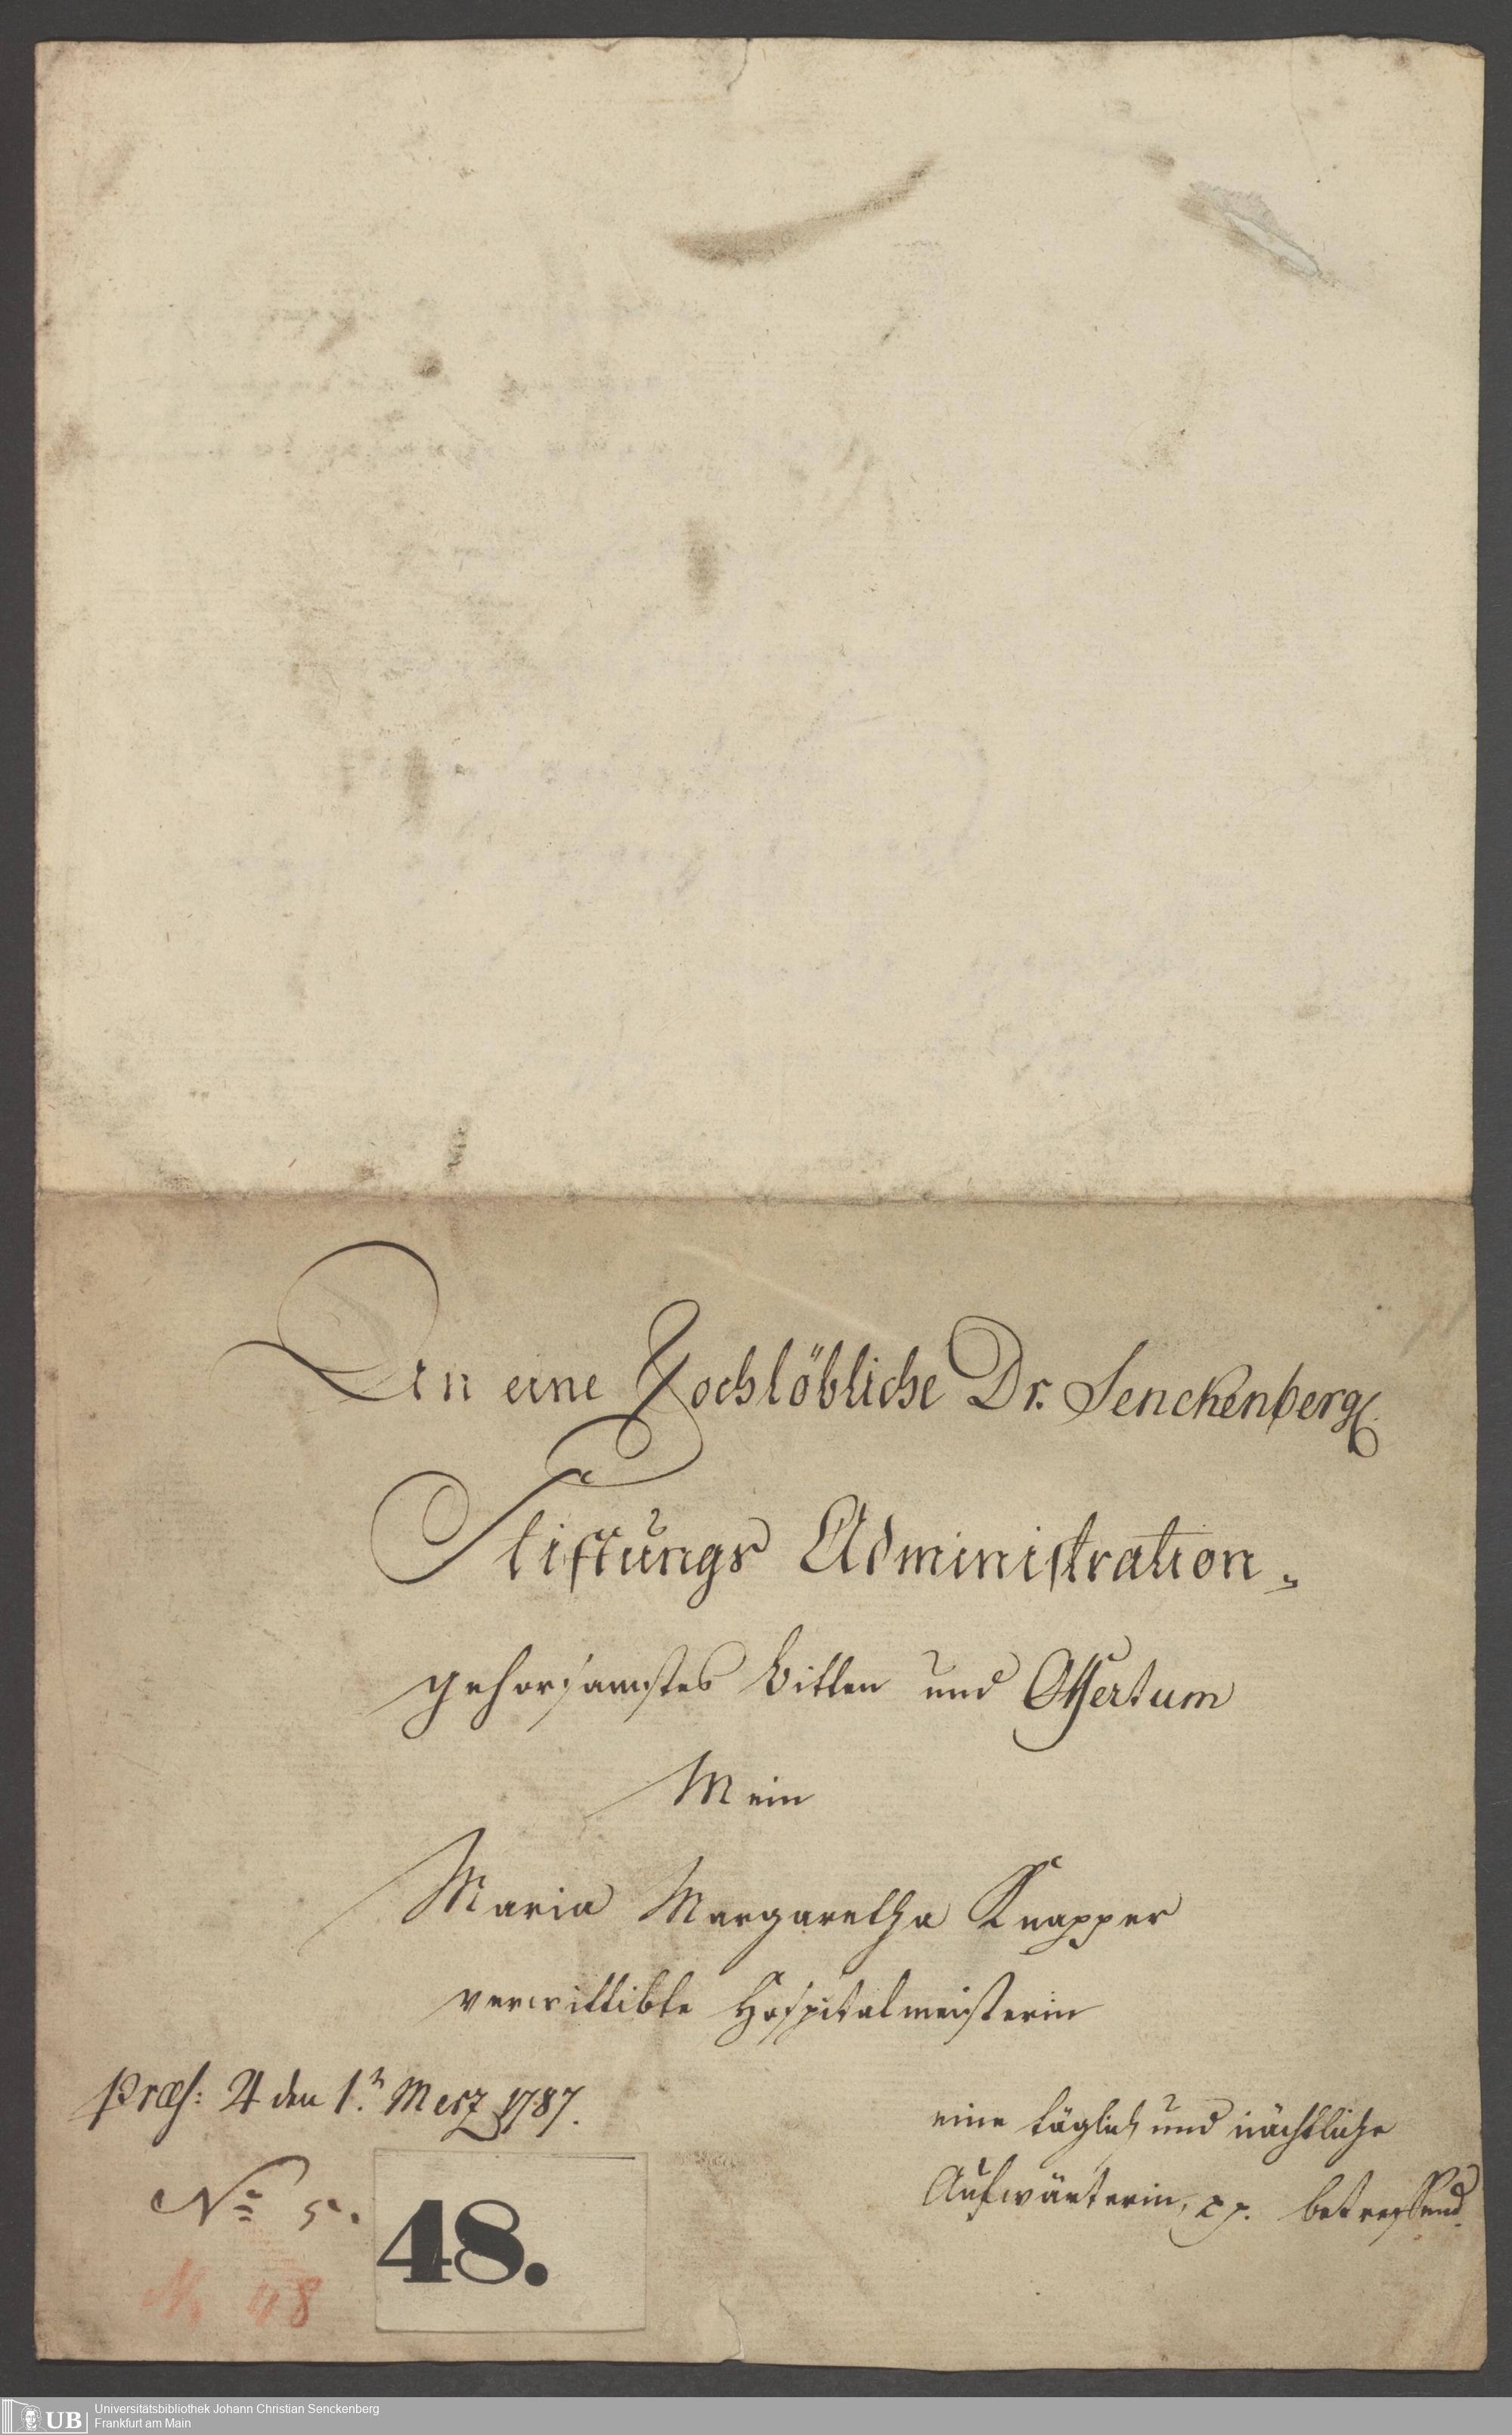 An eine Hochlöbliche Dr. Senckenberg.
Stiftungs Administration.
gehorsamstes Bitten und Offertum
Mein
Maria Margaretha Knapper
verwittibte Hospitalmeisterin
præs: ♃ den 1.n Merz 1787.
eine täglich und nächtliche
Aufwärterin, pp. betreffend.
No 5.
48.
No 48
UB
Universitätsbibliothek Johann Christian Senckenberg
Frankfurt am Main